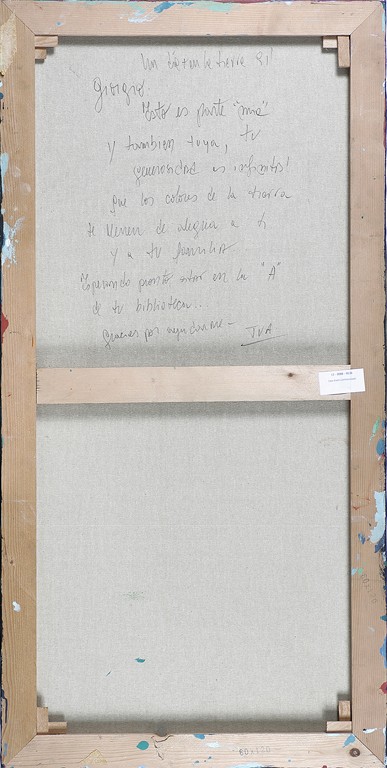 Un día en la tierra 91
Giorgio.
Esto es parte "mía"
y tambien tuya, tu
generosidad es infinita!
que los colores de la tierra
te llenen de alegria a ti
y a tu familia
Esperando pronto estar en la "A"
de tu biblioteca...
Gracias por ayudarme -